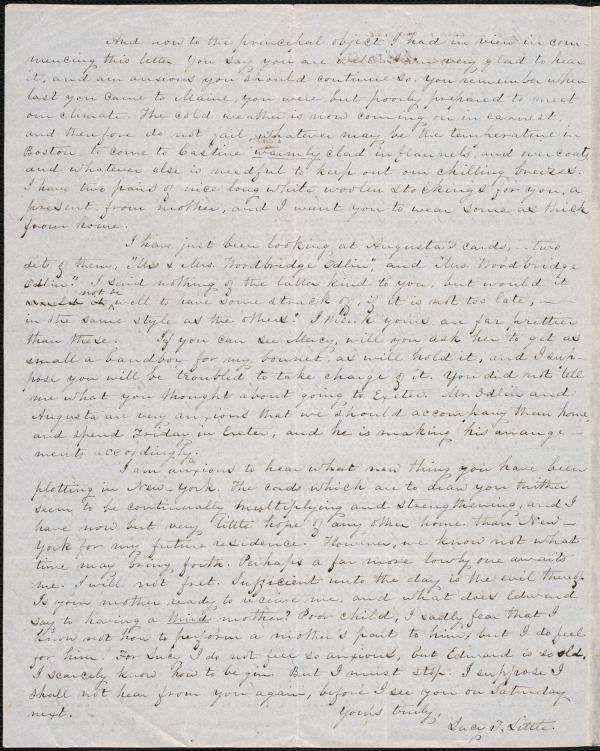 And now to the principal object I had in view in com-
mencing this letter. You say you are well. I am very glad to hear
it, and am anxious you should continue so. You remember when
last you came to Maine, you were but poorly prepared to meet
our climate. The cold weather is now coming on in earnest,
and therefore do not fail, whatever may be the temperature in
Boston, to come to Castine warmly clad in flannels, and over coats
and whatever else is needful to keep out our chilling breezes.
I have two pairs of nice long white woolen stockings for you, a
present from mother, and I want you to wear some as thick
from home.
I have just been looking at Augusta's cards, – two
sets of them, "Mr & Mrs. Woodbridge Odlin", and "Mrs. Woodbridge
Odlin". I said nothing of the latter kind to you, but would it
not be well to have some struck off, if it is not too late, –
in the same style as the others? I think yours are far prettier
than these. If you can see Mary, will you ask her to get as
small a bandbox for my bonnet, as will hold it, and I sup-
pose you will be troubled to take charge of it. You did not tell
me what you thought about going to Exeter. Mr. Odlin and
Augusta are very anxious that we should accompany them home,
and spend Friday in Exeter, and he is making his arrange-
ments accordingly.
I am anxious to hear what new thing you have been
plotting in New-York. The cords which are to draw you thither
seem to be continually multiplying and strengthening, and I
have now but very little hope of any other home than New-
York for my future residence. However, we know not what
time may bring forth. Perhaps a far more lowly one awaits
me. I will not fret. Sufficient unto the day is the evil thereof.
Is your mother ready to receive me, and what does Edward
say to having a third mother? Poor child, I sadly fear that I
know not how to perform a mother's part to him, but I do feel
for him. For Lucy I do not feel so anxious, but Edward is so old,
I scarcely know how to begin. But I must stop. I suppose I
shall not hear from you again, before I see you on Saturday
next. Yours truly,
Lucy J. Little.